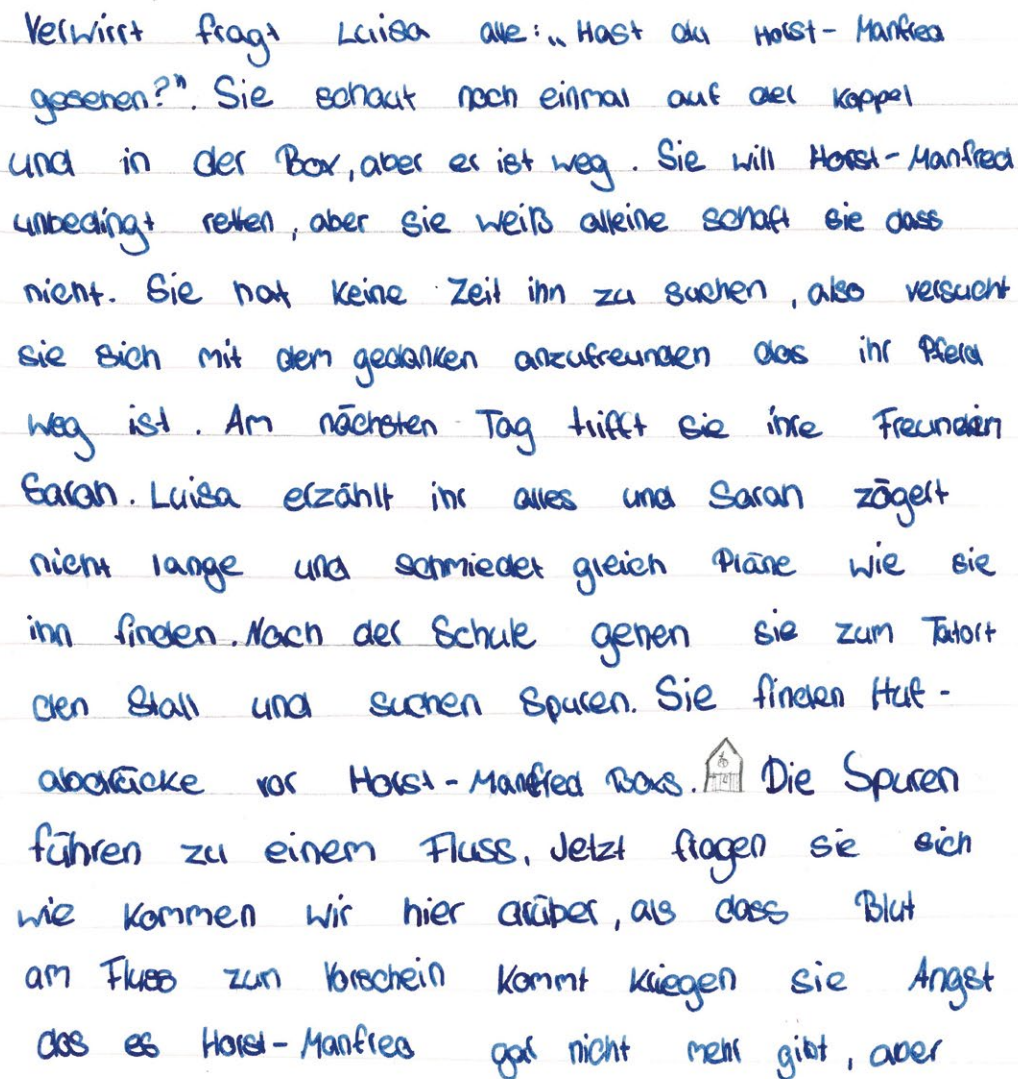 Verwirrt fragt Luisa alle: „Hast du Horst-Manfred
gesehen?". Sie schaut noch einmal auf der Koppel
und in der Box, aber er ist weg. Sie will Horst-Manfred
unbedingt retten, aber sie weiß alleine schaft sie dass
nicht. Sie hat keine Zeit ihn zu suchen, also versucht
sie sich mit dem gedanken anzufreunden das ihr Pferd
weg ist. Am nächsten Tag trifft sie ihre Freundin
Sarah. Luisa erzählt ihr alles und Sarah zögert
nicht lange und schmiedet gleich Pläne wie sie
ihn finden. Nach der Schule gehen sie zum Tatort
den Stall und suchen Spuren. Sie finden Huf-
abdrücke vor Horst-Manfred Boxs. Die Spuren
führen zu einem Fluss. Jetzt fragen sie sich
wie kommen wir hier drüber, als dass Blut
am Fluss zun Vorschein kommt kriegen sie Angst
das es Horst-Manfred gar nicht mehr gibt, aber